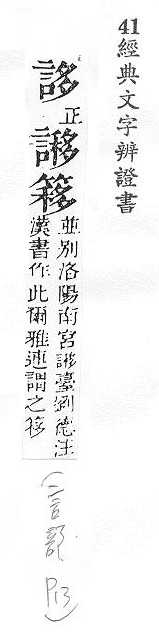 41經典文字辨證書
誃正謻簃
並別洛陽南宮謻臺劉德注
漢書作此爾雅連謂之簃
(言部 P13)